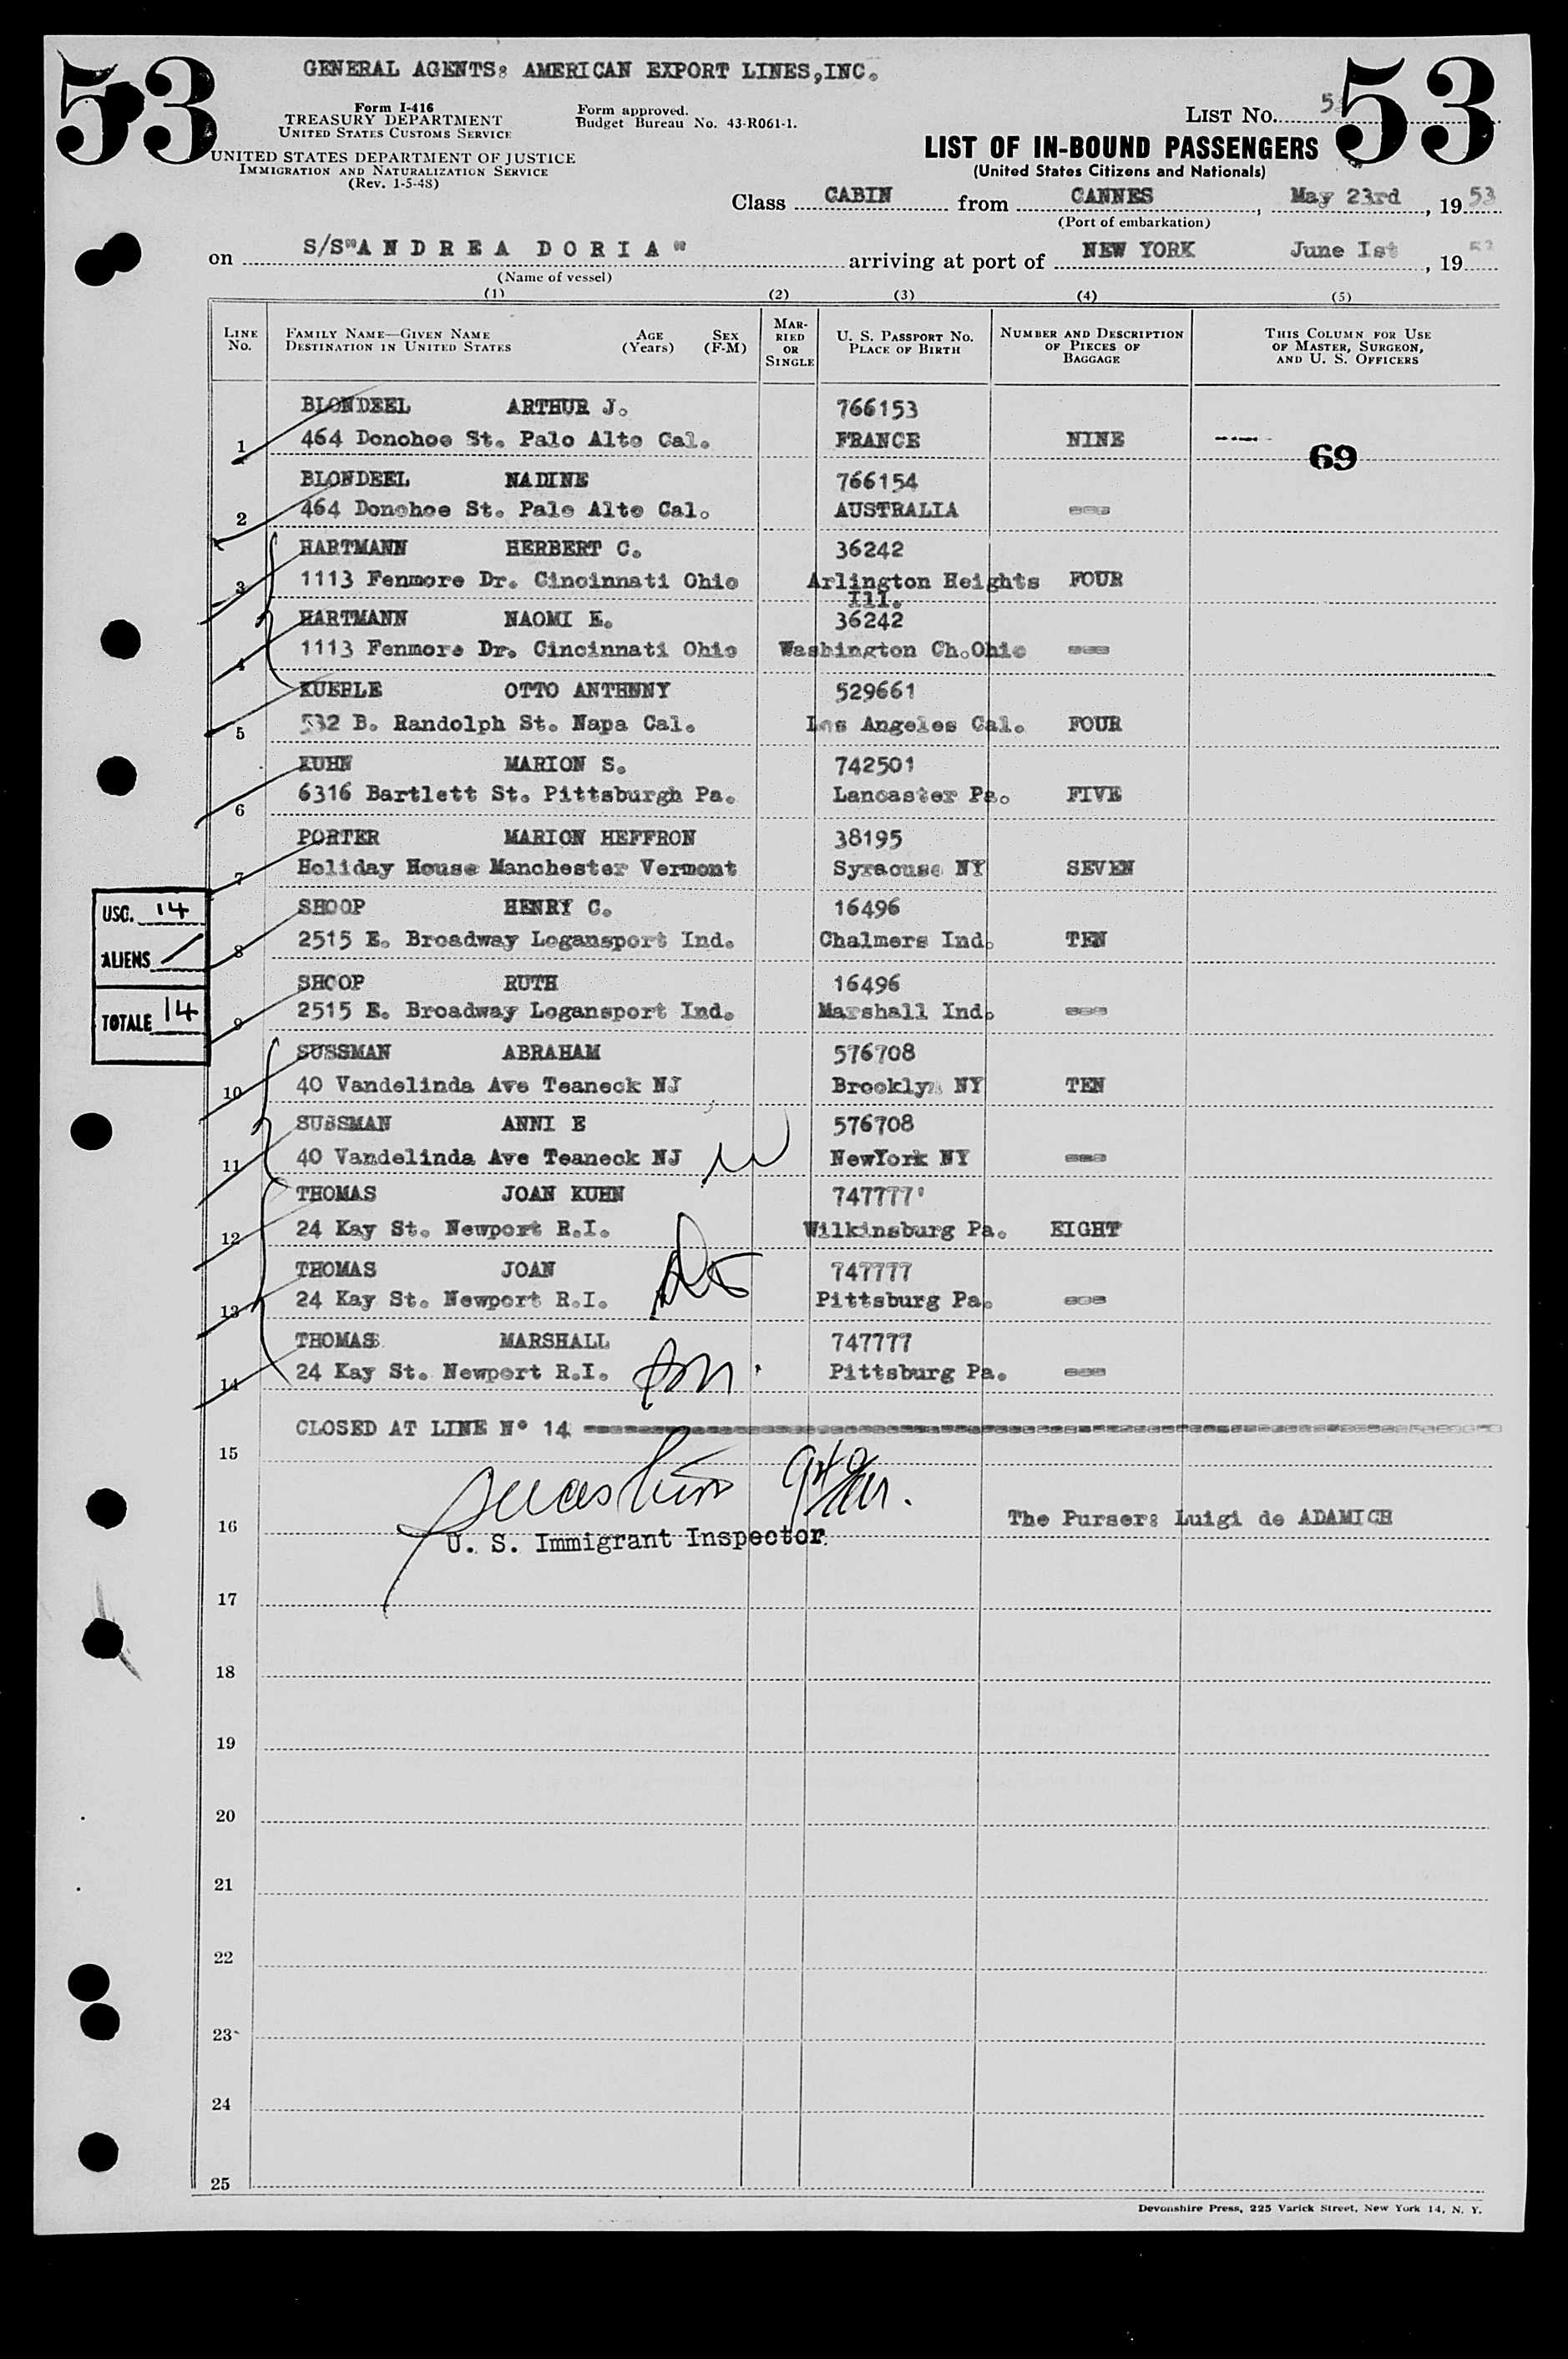 53
53
GENERAL AGENTS: AMERICAN EXPORT LINES,INC.
Form I-416
TREASURY DEPARTMENT
UNITED STATES CUSTOMS SERVICE
Form approved.
Budget Bureau No. 43-R061-1.
LIST NO.
UNITED STATES DEPARTMENT OF JUSTICE
IMMIGRATION AND NATURALIZATION SERVICE
(Rev. 1-5-48)
LIST OF IN-BOUND PASSENGERS
(United States Citizens and Nationals)
Class CABIN from CANNES, May 23rd, 19 53
(Port of embarkation)
on S/S"A N D R E A D O R I A" arriving at port of NEW YORK June Ist, 19 53
(Name of vessel)
(1) (2) (3) (4) (5)
LINE NO.
FAMILY NAME—GIVEN NAME AGE (Years) SEX (F-M)
DESTINATION IN UNITED STATES
MARRIED OR SINGLE
U. S. PASSPORT NO.
PLACE OF BIRTH
NUMBER AND DESCRIPTION OF PIECES OF BAGGAGE
THIS COLUMN FOR USE OF MASTER, SURGEON, AND U. S. OFFICERS
BLONDEEL ARTHUR J. 766153
1 464 Donohoe St. Palo Alto Cal. FRANCE NINE ----- 69
BLONDEEL NADINE 766154
2 464 Donohoe St. Palo Alto Cal. AUSTRALIA ===
HARTMANN HERBERT C. 36242
3 1113 Fenmore Dr. Cincinnati Ohio Arlington Heights FOUR
Ill.
HARTMANN NAOMI E. 36242
4 1113 Fenmore Dr. Cincinnati Ohio Washington Ch.Ohio ===
KUEBLE OTTO ANTHNNY 529661
5 532 B. Randolph St. Napa Cal. Los Angeles Cal. FOUR
KUHN MARION S. 742501
6 6316 Bartlett St. Pittsburgh Pa. Lancaster Pa. FIVE
PORTER MARION HEFFRON 38195
7 Holiday House Manchester Vermont Syracuse NY SEVEN
USC. 14
SHOOP HENRY C. 16496
8 2515 E. Broadway Logansport Ind. Chalmers Ind. TEN
ALIENS /
SHOOP RUTH 16496
9 2515 E. Broadway Logansport Ind. Marshall Ind. ===
TOTALE 14
SUSSMAN ABRAHAM 576708
10 40 Vandelinda Ave Teaneck NJ Brooklyn NY TEN
SUSSMAN ANNI E 576708
11 40 Vandelinda Ave Teaneck NJ NewYork NY ===
THOMAS JOAN KUHN 747777'
12 24 Kay St. Newport R.I. Wilkinsburg Pa. EIGHT
THOMAS JOAN 747777
13 24 Kay St. Newport R.I. Pittsburg Pa. ===
THOMAS MARSHALL 747777
14 24 Kay St. Newport R.I. Pittsburg Pa. ===
CLOSED AT LINE N° 14
15
16 The Purser: Luigi de ADAMICH
U. S. Immigrant Inspector
17
18
19
20
21
22
23
24
25
Devonshire Press, 225 Varick Street, New York 14, N. Y.